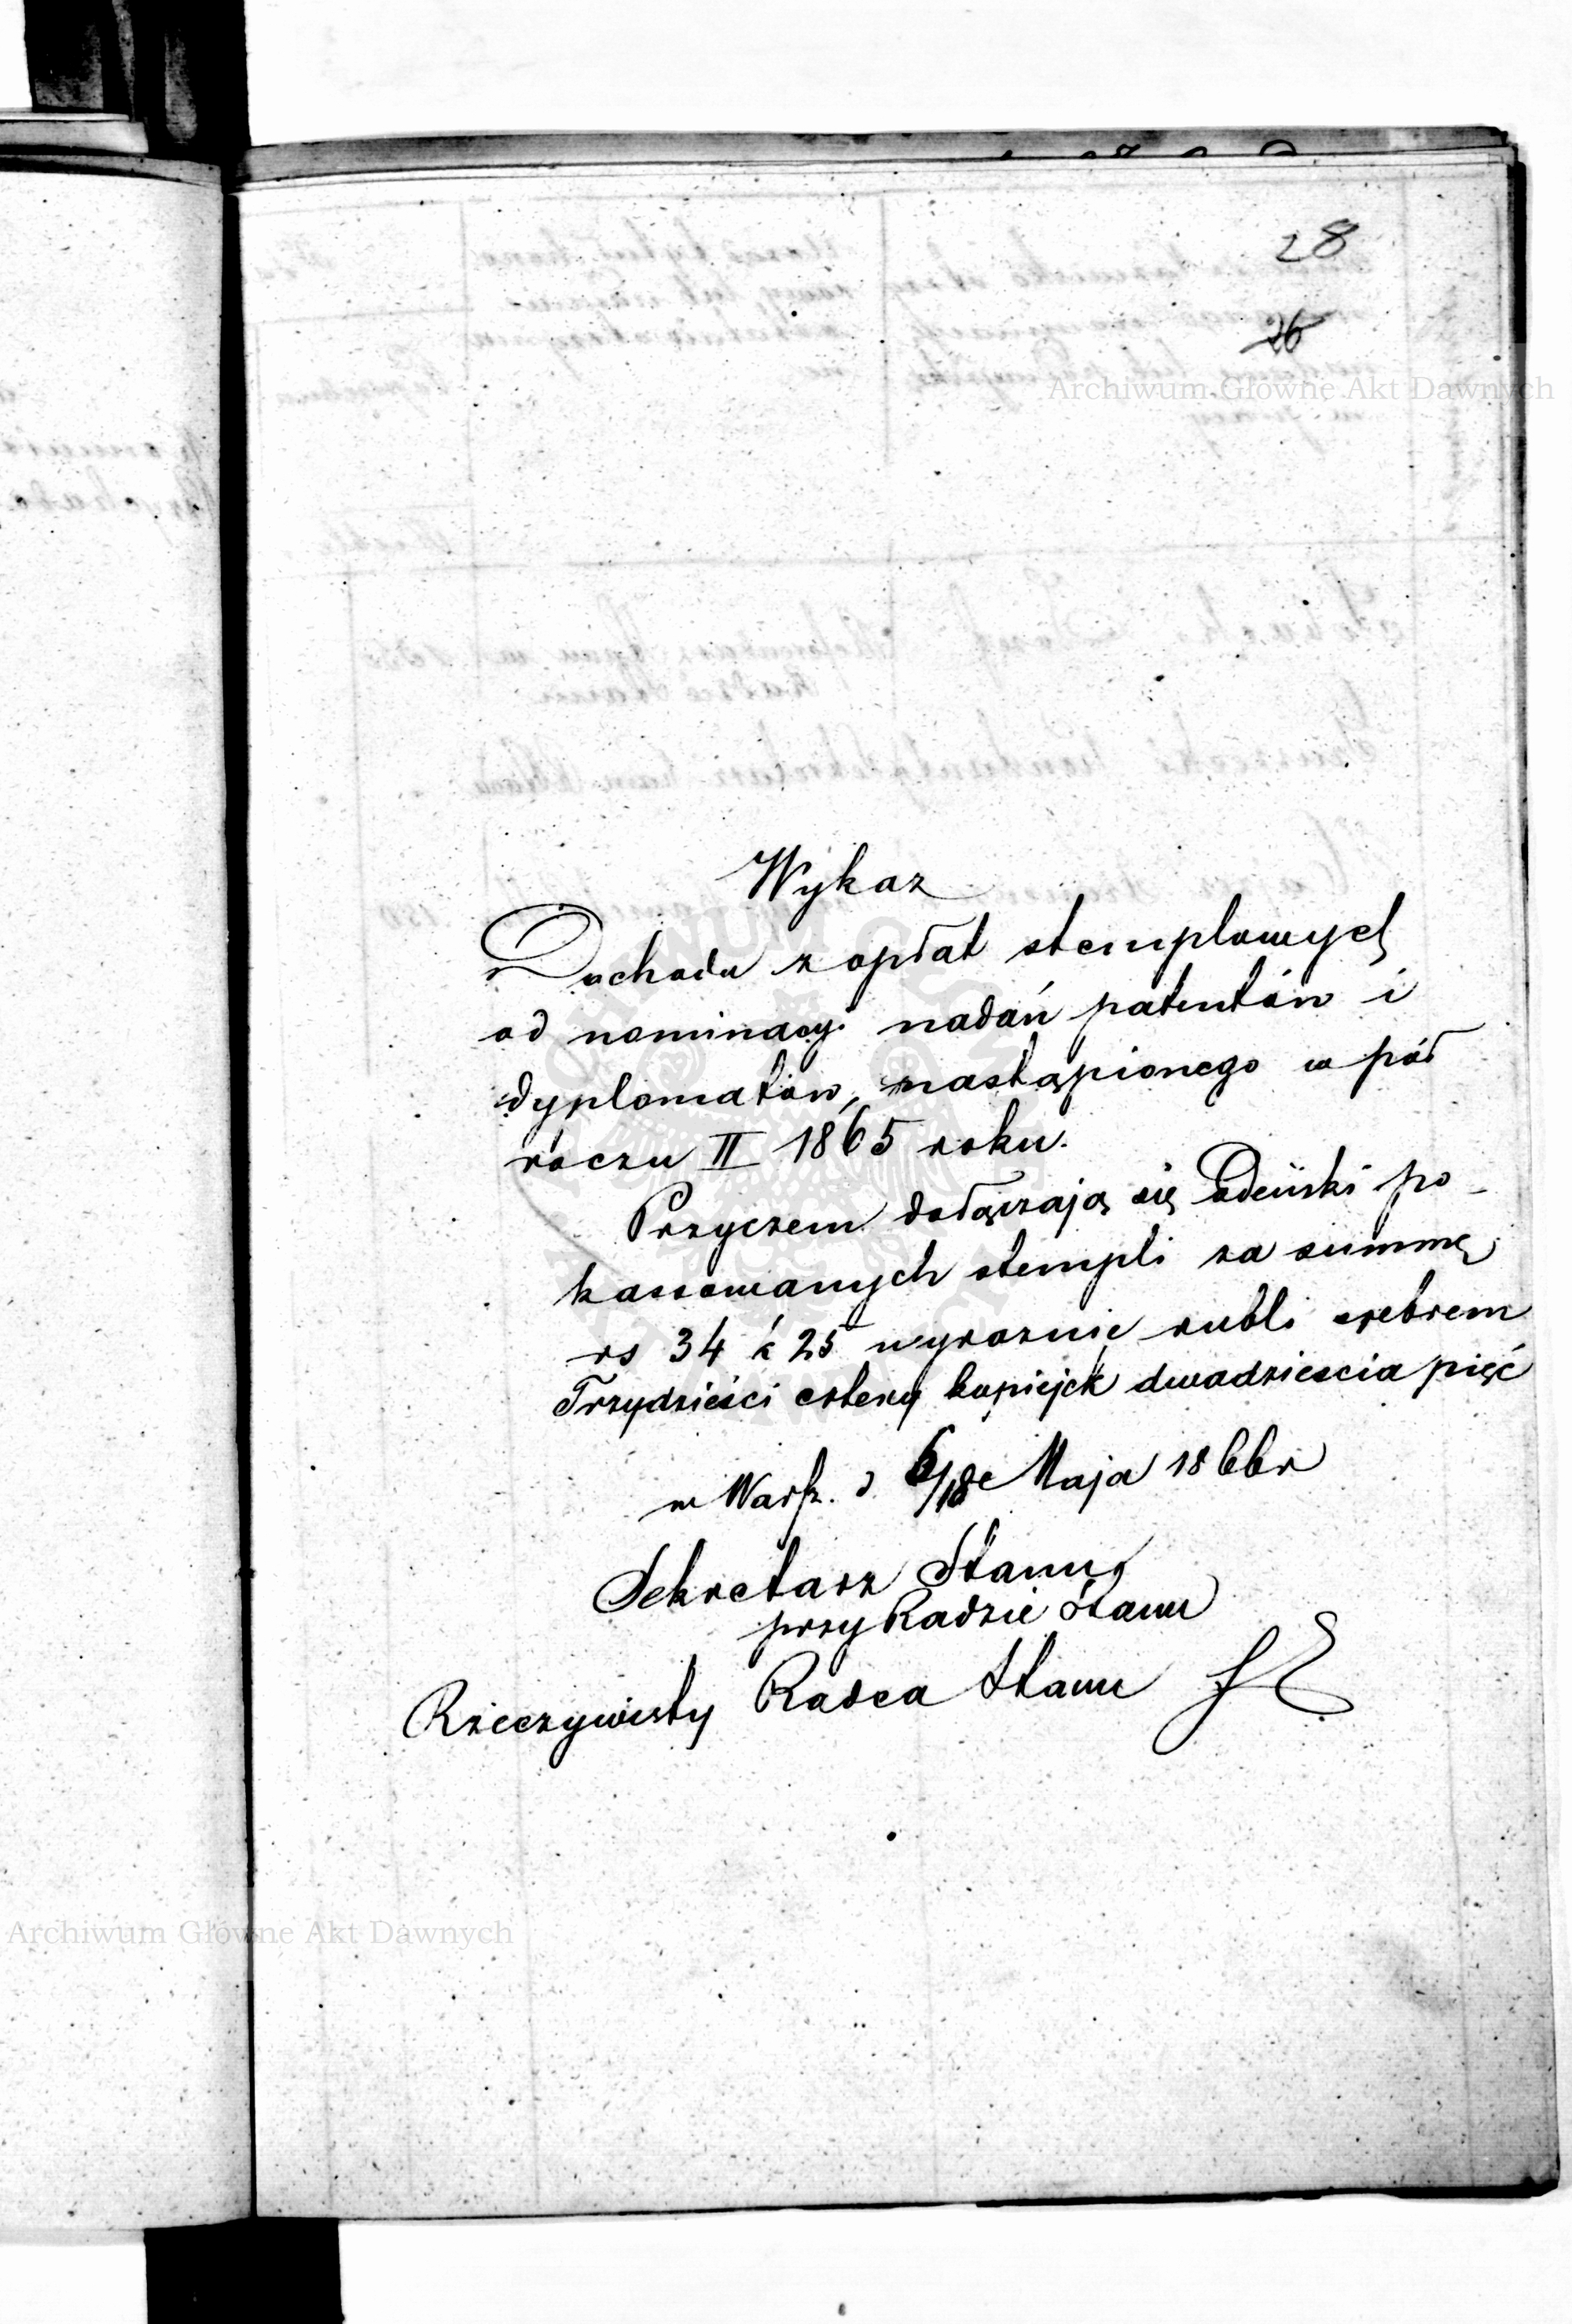 28
26
Archiwum Główne Akt Dawnych
Wykaz
Dochodu z opłat stemplowych
od nominacyi nadań patentów i
dyplomatów, nastąpionego w pół
róczu II 1865 roku.
Przyczem dołączają się Odcinki po
kassowanych stempli za summę
rs 34 k 25 wyraznie rubli srebrem
Trzydzieści cztery kopiejek dwadziescia pięć
w Warsz. d 6/18 Maja 1866 r
Sekretarz Stanu
przy Radzie Stanu
Rzeczywisty Radca Stanu
Archiwum Główne Akt Dawnych